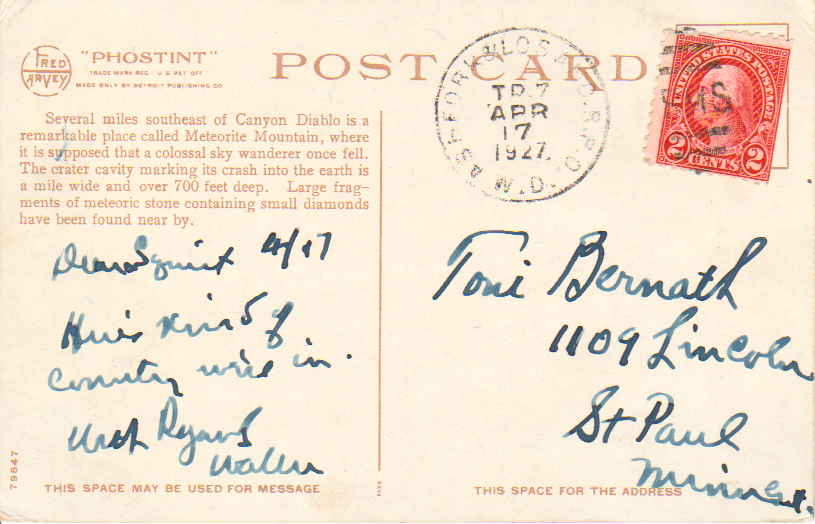 FRED
HARVEY
"PHOSTINT"
TRADE MARK REG. U S PAT. OFF
MADE ONLY BY DETROIT PUBLISHING CO
POST CARD
Several miles southeast of Canyon Diablo is a
remarkable place called Meteorite Mountain, where
it is supposed that a colossal sky wanderer once fell.
The crater cavity marking its crash into the earth is
a mile wide and over 700 feet deep. Large frag-
ments of meteoric stone containing small diamonds
have been found near by.
ASHFORK & LOS
TR.7
APR
17
1927.
R.P.O.
W.D.
UNITED STATES POSTAGE
2 CENTS 2
Dear Squint 4/17
Kind of
Country we're in.
Walter
Toni Bernath
1109 Lincoln
St Paul
79647
THIS SPACE MAY BE USED FOR MESSAGE
THIS SPACE FOR THE ADDRESS